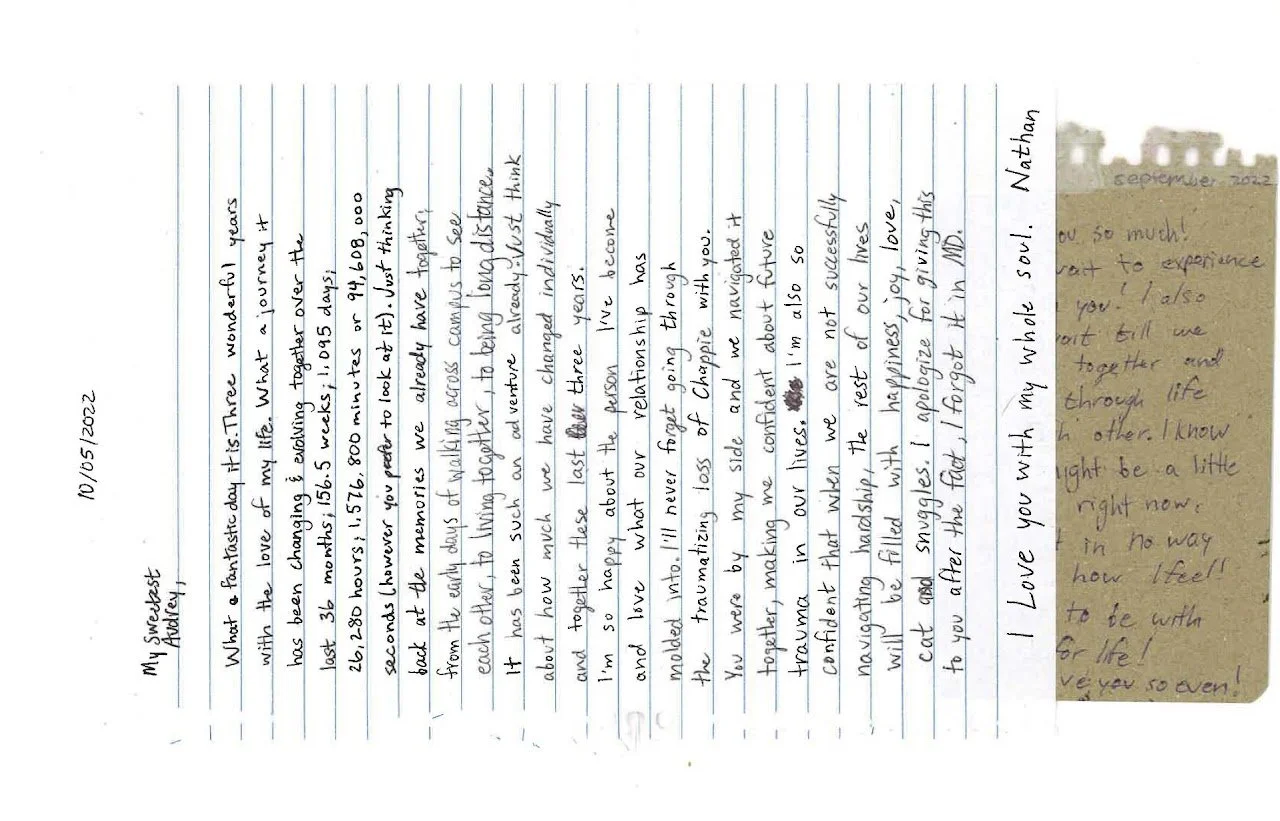 10/05/2022
My sweetest
Audrey,
What a fantastic day it is. Three wonderful years
with the love of my life. What a journey it
has been changing & evolving together over the
last 36 months; 156.5 weeks; 1,095 days;
26,280 hours; 1,576,800 minutes or 94,608,000
seconds (however you prefer to look at it). Just thinking
back at the memories we already have together;
from the early days of walking across campus to see
each other, to living together, to being long distance.
It has been such an adventure already-Just think
about how much we have changed individually
and together these last three years.
I'm so happy about the person I've become
and love what our relationship has
molded into. I'll never forget going through
the traumatizing loss of Chappie with you.
You were by my side and we navigated it
together, making me confident about future
trauma in our lives. I'm also so
confident that when we are not successfully
navigating hardship, the rest of our lives
will be filled with happiness, joy, love,
cat and snuggles. I apologize for giving this
to you after the fact, I forgot it in MD.
I Love you with my whole soul. Nathan
september 2022
ou so much!
vait to experience
you! I also
vait till we
together and
through life
h other. I know
ight be a little
right now,
t in no way
how I feel!
to be with
for life!
ve you so even!